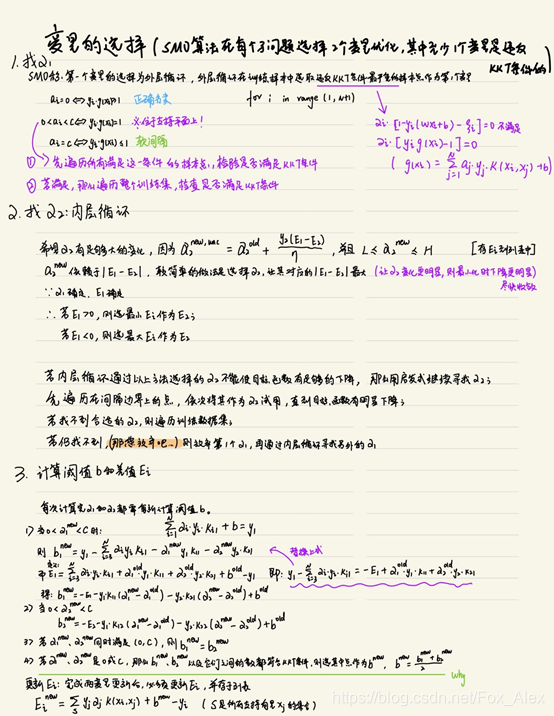 变量的选择 (SMO算法在每个子问题选择2个变量优化,其中至少1个变量是违反KKT条件的)
1. 找α₁
SMO称:第一个变量的选择为外层循环,外层循环在训练样本中选取违反KKT条件最严重的样本点作为第1个变量
αᵢ=0 ⇔ yᵢ·g(xᵢ)≥1 正确分类 for i in range (1, N+1)
0<αᵢ<C ⇔ yᵢ·g(xᵢ)=1 xᵢ位于支持平面上!
αᵢ=C ⇔ yᵢ·g(xᵢ)≤1 软间隔
αᵢ·[1-yᵢ(wxᵢ+b)-ξᵢ]=0 不满足
αᵢ·[yᵢg(xᵢ)-1]=0
( g(xᵢ) = Σⱼ₌₁ᴺ αⱼ·yⱼ·K(xᵢ,xⱼ)+b )
① 先遍历所有满足这一条件的样本点,检验是否满足KKT条件
② 若满足,那么遍历整个训练集,检查是否满足KKT条件
2. 找α₂:内层循环
希望α₂有足够大的变化,因为 α₂^{new,unc} = α₂^{old} + y₂(E₁-E₂)/η ,并且 L ≤ α₂^{new} ≤ H [存Eᵢ到列表中]
α₂^{new}依赖于|E₁-E₂|,最简单的做法是选择α₂,让其对应的|E₁-E₂|最大 (让α₂变化更明显,则最小化时下降更明显)
尽快收敛
∵ α₁确定,E₁确定
∴ 若E₁>0,则选最小Eᵢ作为E₂;
若E₁<0,则选最大Eᵢ作为E₂
若内层循环通过以上方法选择的α₂不能使目标函数有足够的下降,那么用启发式继续寻找α₂;
先遍历在间隔边界上的点,依次将其作为α₂试用,直到目标函数有明显下降;
若找不到合适的α₂,则遍历训练数据集;
若仍找不到,(那您放弃吧..)则放弃第1个α₁,再通过内层循环寻找另外的α₁
3. 计算阈值b和差值Eᵢ
每次计算完α₁和α₂都需重新计算阈值b。
1) 当0<α₁^{new}<C时: Σᵢ₌₁ᴺ αᵢ·yᵢ·Kᵢ₁ + b = y₁
则 b₁^{new} = y₁ - Σᵢ₌₃ᴺ αᵢyᵢKᵢ₁ - α₁^{new}y₁K₁₁ - α₂^{new}y₂K₂₁ 替换上式
E₁ = Σᵢ₌₃ᴺ αᵢ·yᵢ·Kᵢ₁ + α₁^{old}·y₁·K₁₁ + α₂^{old}·y₂·K₂₁ + b^{old} - y₁ 即: y₁ - Σᵢ₌₃ᴺ αᵢ·yᵢ·Kᵢ₁ = -E₁ + α₁^{old}·y₁·K₁₁ + α₂^{old}·y₂·K₂₁
得: b₁^{new} = -E₁ - y₁·K₁₁(α₁^{new}-α₁^{old}) - y₂·K₂₁(α₂^{new}-α₂^{old}) + b^{old}
2) 当0<α₂^{new}<C
b₂^{new} = -E₂ - y₁·K₁₂(α₁^{new}-α₁^{old}) - y₂·K₂₂(α₂^{new}-α₂^{old}) + b^{old}
3) 若α₁^{new}、α₂^{new}同时满足(0,C),则b₁^{new}=b₂^{new}
4) 若α₁^{new}、α₂^{new}是0或C,那么b₁^{new}、b₂^{new}以及它们之间的数都符合KKT条件,则选其中点作为b^{new}, b^{new} = (b₁^{new}+b₂^{new})/2
why
更新Eᵢ: 完成两变量更新后,必须更新Eᵢ,并存于列表
Eᵢ^{new} = Σ_S yⱼαⱼK(xᵢ,xⱼ) + b^{new} - yᵢ (S是所有支持向量xⱼ的集合)
https://blog.csdn.net/Fox_Alex